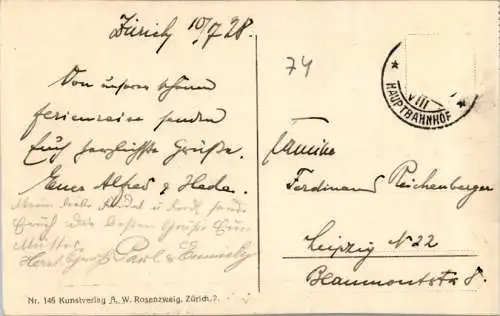 Zürich 10/7 28.
Von unserer schönen
Ferienreise senden
Euch herzlichste Grüße.
Euer Alfred & Hede.
Euch die besten Grüße Eure
Paul &
74
VIII
HAUPTBAHNHOF
Familie
Ferdinand Reichenberger
Leipzig N 22
Beaumontstr 8.
Nr. 146 Kunstverlag A. W. Rosenzweig, Zürich 7.